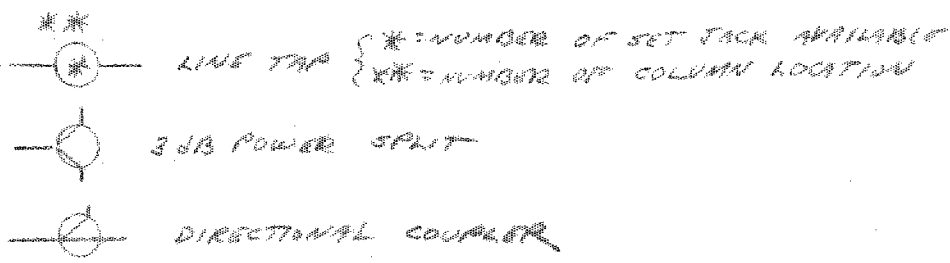 **
* LINE TAP { * = NUMBER OF SET JACK AVAILABLE
** = NUMBER OF COLUMN LOCATION
3 dB POWER SPLIT
DIRECTIONAL COUPLER